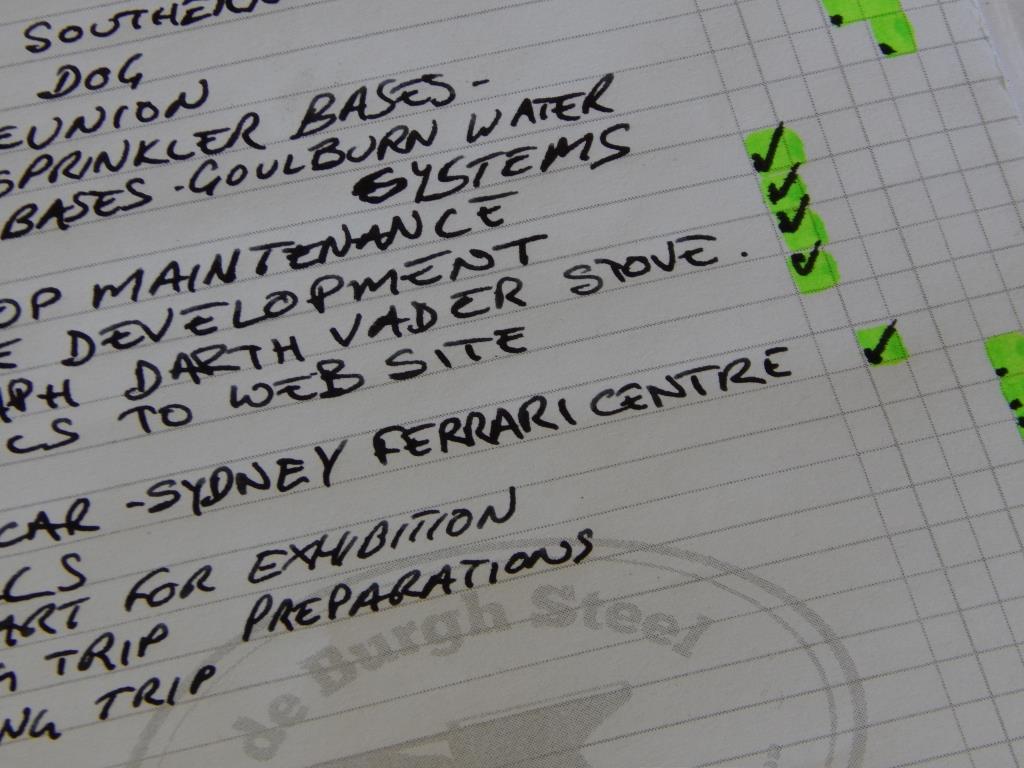 SOUTHERN
DOG
EUNION
SPRINKLER BASES-
BASES-GOULBURN WATER
SYSTEMS
OP MAINTENANCE
E DEVELOPMENT
APH DARTH VADER STOVE.
CS TO WEB SITE
CAR-SYDNEY FERRARI CENTRE
CS
ART FOR EXHIBITION
G TRIP PREPARATIONS
NG TRIP
de Burgh Steel